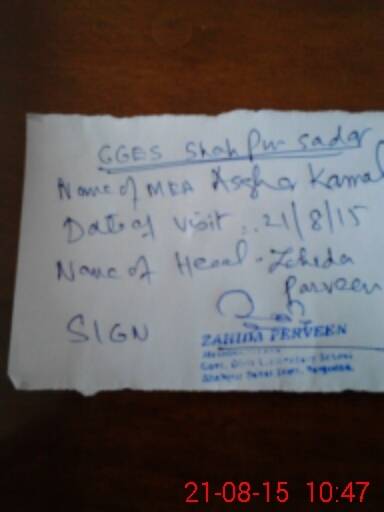 GGES Shahpur sadar
Name of MEA Asghar Kamal
Date of visit :. 21/8/15
Name of Head - Zahida
Parveen
SIGN
ZAHIDA PERVEEN
Govt. Girls Elementary School
Shahpur Sadar Distt. Sargodha
21-08-15 10:47